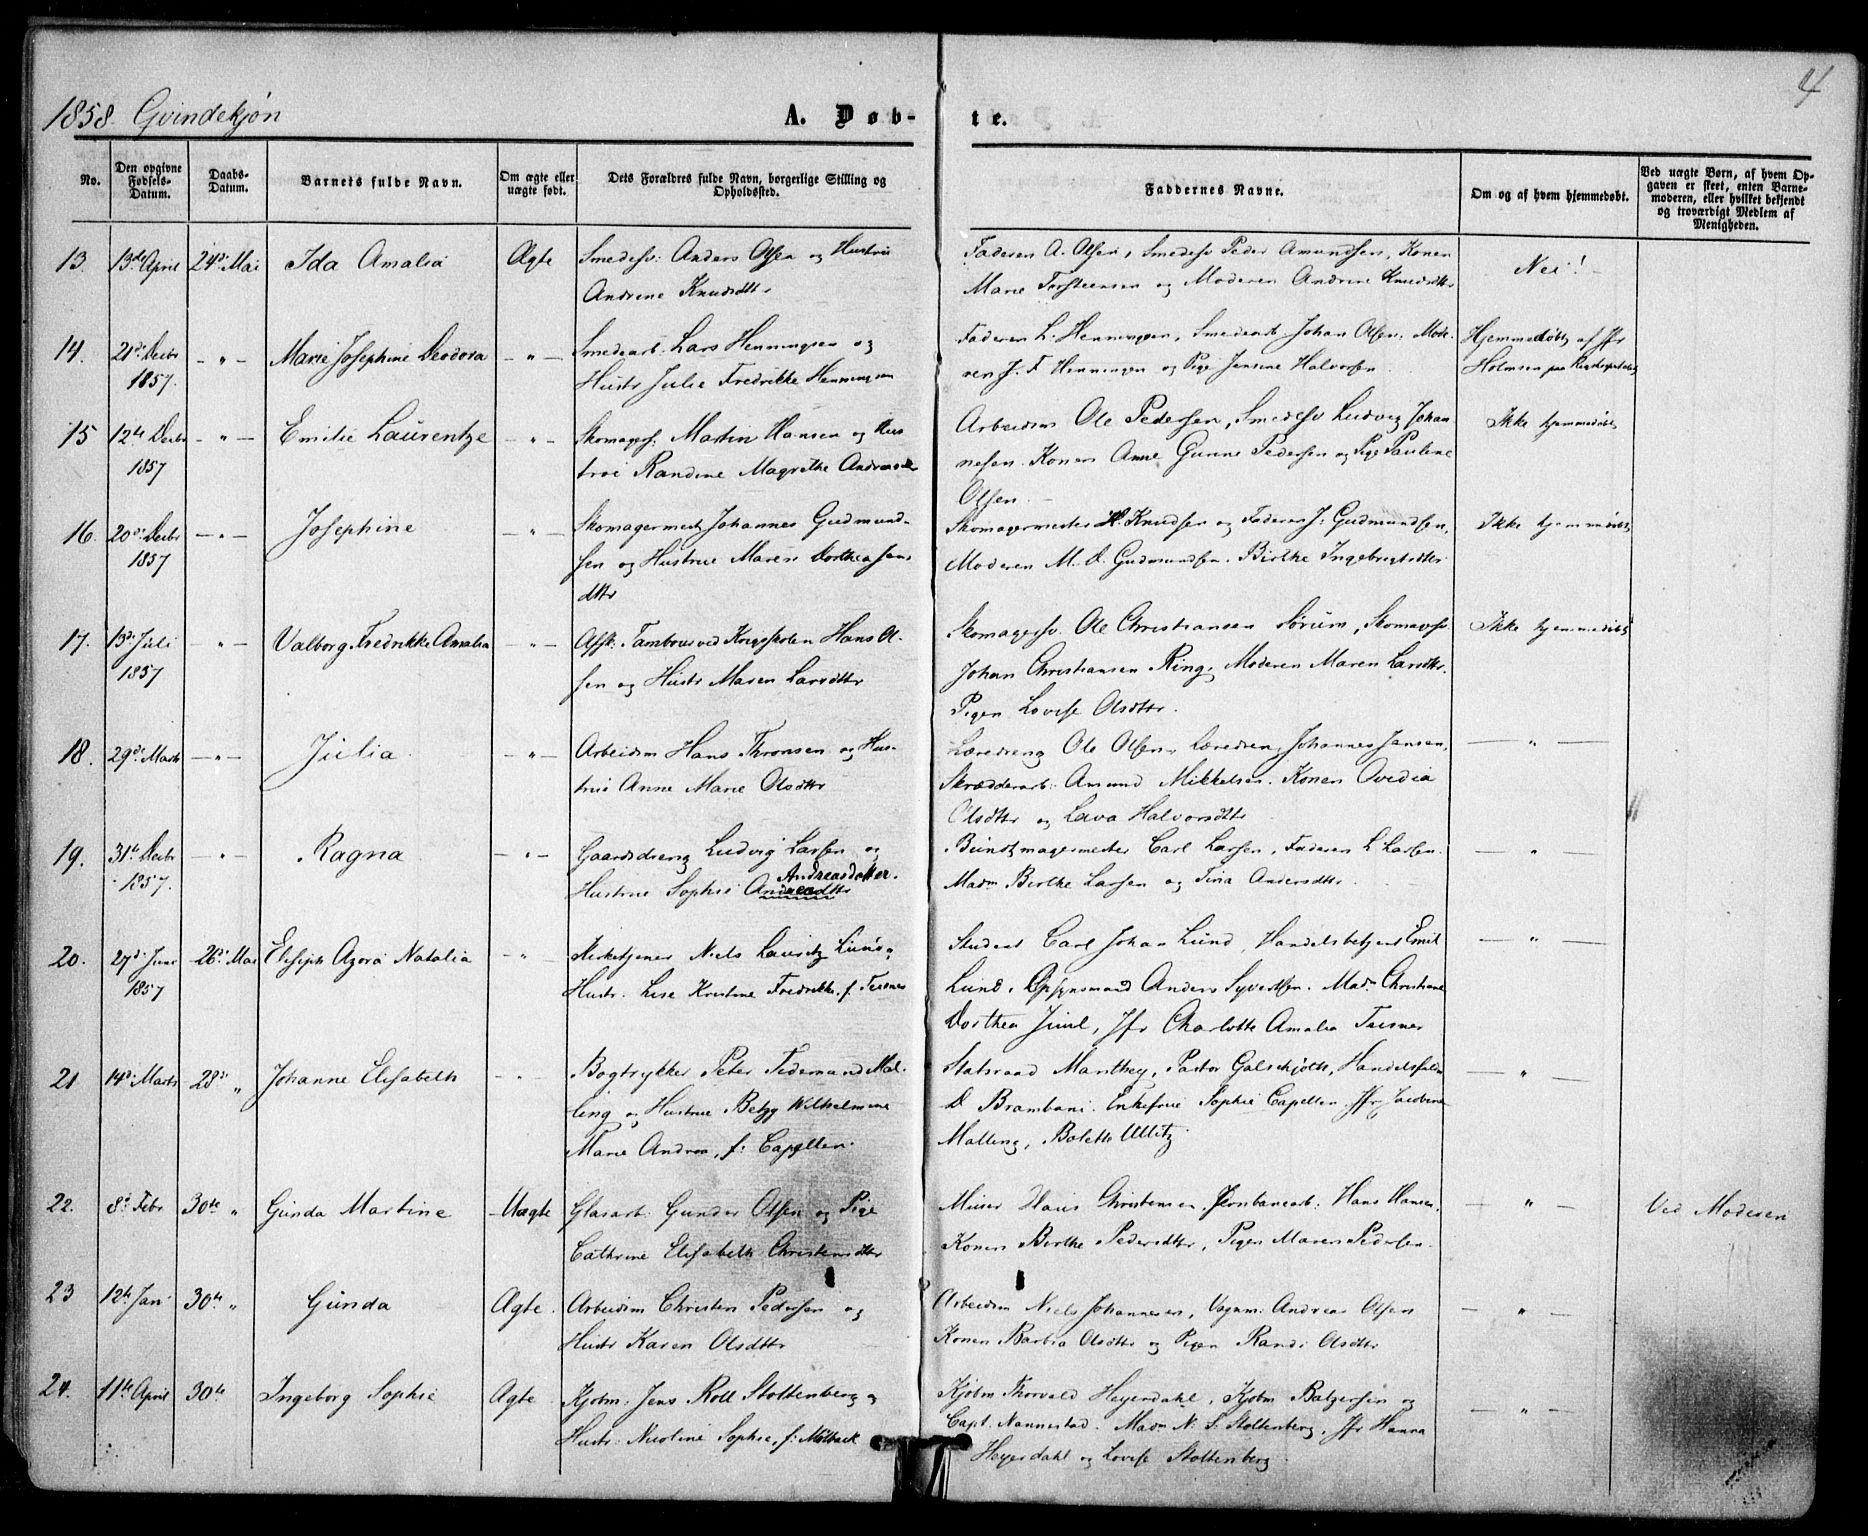 4
1858 Qvindekjøn
A. Døbte.
No.
Den opgivne Fødsels-Datum.
Daabs-Datum.
Barnets fulde Navn.
Om ægte eller uægte født.
Dets Forældres fulde Navn, borgerlige Stilling og Opholdssted.
Faddernes Navne.
Om og af hvem hjemmedøbt.
Ved uægte Børn, af hvem Opgaven er skeet, enten Barnemoderen, eller hvilket bekjendt og troværdigt Medlem af Menigheden.
13. 13de April 24de Mai Ida Amalia Ægte Smedesv: Anders Olsen og Hustru
Andrine Knudsdtr
Faderen A. Olsen, Smedesv Peder Amundsen, Konen
Marie Torsteensen og Moderen Andrine Knudsdtr
Nei!
14. 21de Decbr 1857. – " – Marie Josephine Deodora – " – Smedearb: Lars Henningsen og
Hustr Julie Fredrikke Henningsen
Faderen L: Henningsen, Smedearb Johan Olsen. Mode-
ren J. F Henningsen og Pige Jensine Halvorsen
Hjemmedøbt af Jfr
Holmsen paa Rigshospitalet
15 12te Decbr 1857 – " – Emilie Laurentze – " – Skomagers. Martin Hansen og Hus
true Randine Magrethe Andreasdtr
Arbeidsm Ole Pedersen, Smedesv Ludvig Johan
nesen. Konen Anne Gurine Pedersen og Pige Pauline
Olsen.
Ikke hjemmedøbt
16. 20de Decbr 1857 – " – Josephine – " – Skomagermest Johannes Gudmund-
sen og Hustrue Maren Dorthea Jens
dttr
Skomagermester H. Knudsen og Faderen J: Gudmundsen,
Moderen M. D. Gudmundsen. Birthe Ingebregtsdttr
Ikke hjemmedøbt
17. 13de Juli 1857 – " – Valborg Fredrikke Amalia – " – Afsk: Tambour ved Krigsskolen Hans Ol-
sen og Hustr Maren Larsdttr
Skomagersv. Ole Christiansen Sørum, Skomagersv
Johan Christiansen Ring, Moderen Maren Larsdttr.
Pigen Lovise Olsdttr.
Ikke hjemmedøbt
18. 29de Marts – " – Julia – " – Arbeidsm Hans Thronsen og Hus-
true Anne Marie Olsdttr
Læredreng Ole Olsen, Læredreng Johannes Jansen,
Skrædderarb: Amund Mikkelsen. Konen Ovedia
Olsdttr og Lava Halvorsdttr
– " –
19. 31te Decbr 1857. – " – Ragna – " – Gaardsdreng Ludvig Larsen og
Andreasdatter.
Hustrue Sophie Andreadttr
Buntmagermester Carl Larsen, Faderen L Larsen.
Madm Birthe Larsen og Tina Andersdttr
– " –
20. 27de Juni 1857 26de Mai Elisabeth Azora Natalia – " – Kirketjener Niels Lauritz Lund &
Hustr. Lise Kristine Fredrikke f. Teisner
Student Carl Johan Lund, Handelsbetjent Emil
Lund, Opsynsmand Anders Syvertsen. Madm Christiane
Dorthea Juul, Jfr Charlotte Amalia Teisner
– " –
21 14de Marts 28de " Johanne Elisabeth – " – Bogtrykker Peter Tidemand Mal-
ling og Hustrue Betzy Wilhelmine
Marie Andrea, f: Capellen.
Statsraad Manthey, Pastor Galschjøth, Handelsfuldm
D Brambani. Enkefrue Sophie Capellen. Jfr Jacobine
Malling, Bolette Ullitz
– " –
22. 8de Febr 30te " Gunda Martine Uægte Glasarb. Gunder Olsen og Pige
Cathrine Elisabeth Christensdtr
Murer Hans Christensen, Jernbanearb: Hans Hansen,
Konen Birthe Pedersdttr, Pigen Maren Pedersen.
– " –
Ved Moderen
23 12te Jan 30te " Gunda Ægte. Arbeidsm Christen Pedersen og
Hustr Karen Olsdttr
Arbeidsm Niels Johannesen, Vognm: Andreas Olsen
Konen Barbra Olsdttr og Pigen Randi Olsdttr
– " –
24. 11te April 30te Ingeborg Sophie Ægte Kjøbm: Jens Roll Stoltenberg &
Hustr. Nicoline Sophie, f: Møllback
Kjøbm Thorvald Heyerdahl, Kjøbm Balzersen og
Capt. Nannestad. Madm N. S. Stoltenberg, Jfr Hanna
Heyerdahl og Lovise Stoltenberg
– " –